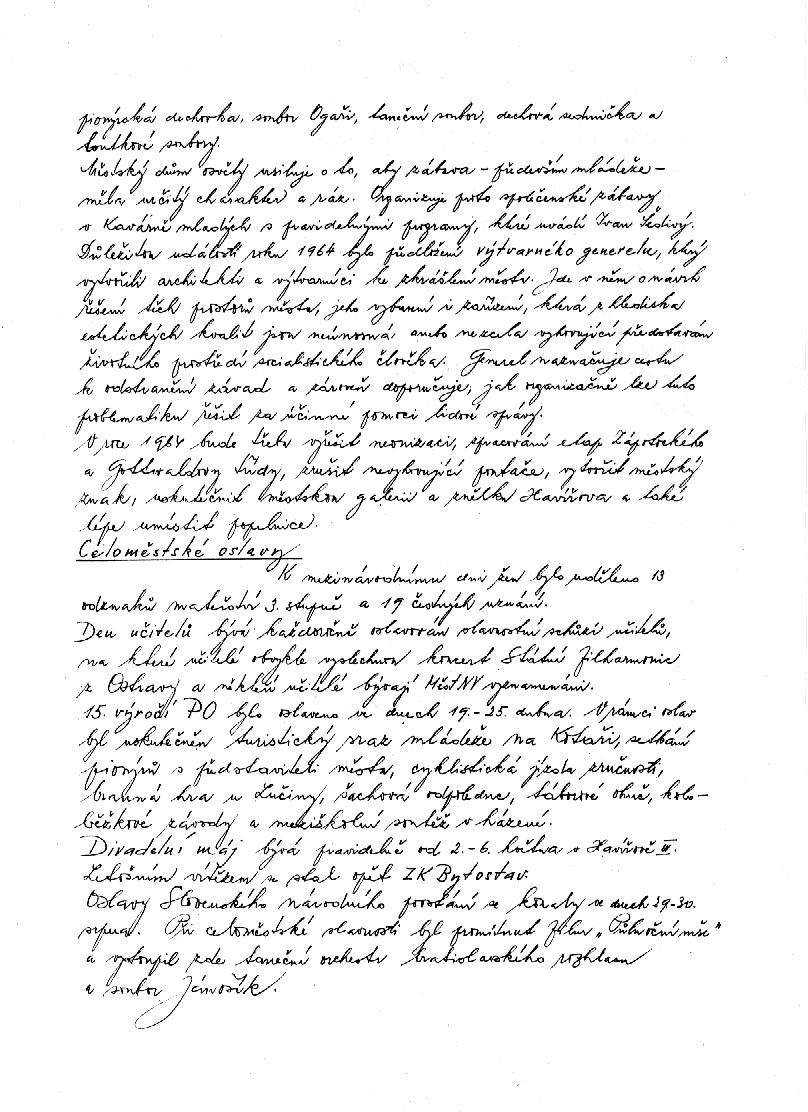 pionýrská dechovka, soubor Ogaři, taneční soubor, dechová sedmička a
loutkové soubory.
Městský dům osvěty usiluje o to, aby zábava – především mládeže –
měla určitý charakter a ráz. Organizuje proto společenské zábavy
v Kavárně mladých s pravidelnými programy, které uvádí Ivan Šedivý.
Důležitou událostí roku 1964 bylo předložení výtvarného generelu, který
vytvořili architekti a výtvarníci ke zkrášlení města. Jde v něm o návrh
řešení těch prostorů města, jeho vybavení i zařízení, která z hlediska
estetických kvalit jsou neúnosná anebo nezcela vyhovující představám
životního prostředí socialistického člověka. Generel naznačuje cestu
k odstranění závad a zároveň doporučuje, jak organizačně lze tuto
problematiku řešit za účinné pomoci lidové správy.
V roce 1964 bude třeba vyřešit neonizaci, zpracování etap Zápotockého
a Gottwaldovy třídy, zrušit nevyhovující poutače, vytvořit městský
znak, uskutečnit městskou galerii a znělku Havířova a také
lépe umístit popelnice.
Celoměstské oslavy
K mezinárodnímu dni žen bylo uděleno 13
odznaků mateřství 3. stupně a 19 čestných uznání.
Den učitelů bývá každoročně oslavován slavnostní schůzí učitelů,
na které učitelé obvykle vyslechnou koncert Státní filharmonie
z Ostravy a někteří učitelé bývají MěstNV vyznamenáni.
15. výročí PO bylo oslaveno ve dnech 19.-25. dubna. V rámci oslav
byl uskutečněn turistický sraz mládeže na Kotaři, setkání
pionýrů s představiteli města, cyklistická jízda zručnosti,
branná hra u Lučiny, šachová odpoledne, táborové ohně, kolo-
běžkové závody a meziškolní soutěž v házení.
Divadelní máj bývá pravidelně od 2.-6. května v Havířově II.
Letošním vítězem se stal opět ZK Bytostav.
Oslavy Slovenského národního povstání se konaly ve dnech 29-30.
srpna. Při celoměstské slavnosti byl promítnut film „Půlnoční mše"
a vystoupil zde taneční orchestr bratislavského rozhlasu
a soubor Jánošík.